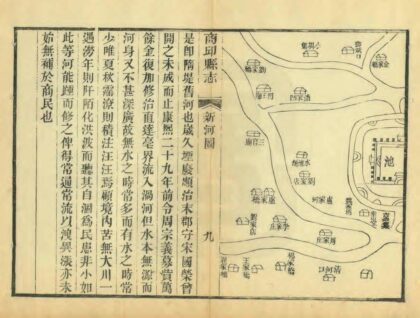 池
三官廟
劉家店
李家庄
商邱縣志
新河圖
九
是即隋堤舊河也歲久堙廢順治末郡守宋國榮曾
開之未成而止康熙二十九年前令周宗義募貲萬
餘金復加修治直達亳界流入渦河但水本無源而
河身又不甚深廣故無水之時常多而有水之時常
少唯夏秋霖潦則積注汪汪焉顧境內苦無大川一
遇澇年則阡陌化洪波而聽其自涸為民患非小如
此等河能踵而修之俾得常通常流以洩異漲亦未
始無補於商民也